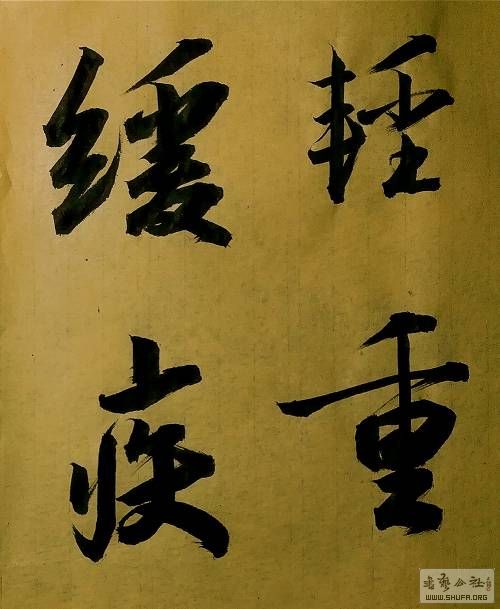 輕重
緩疾
書藝公社
WWW.SHUFA.ORG